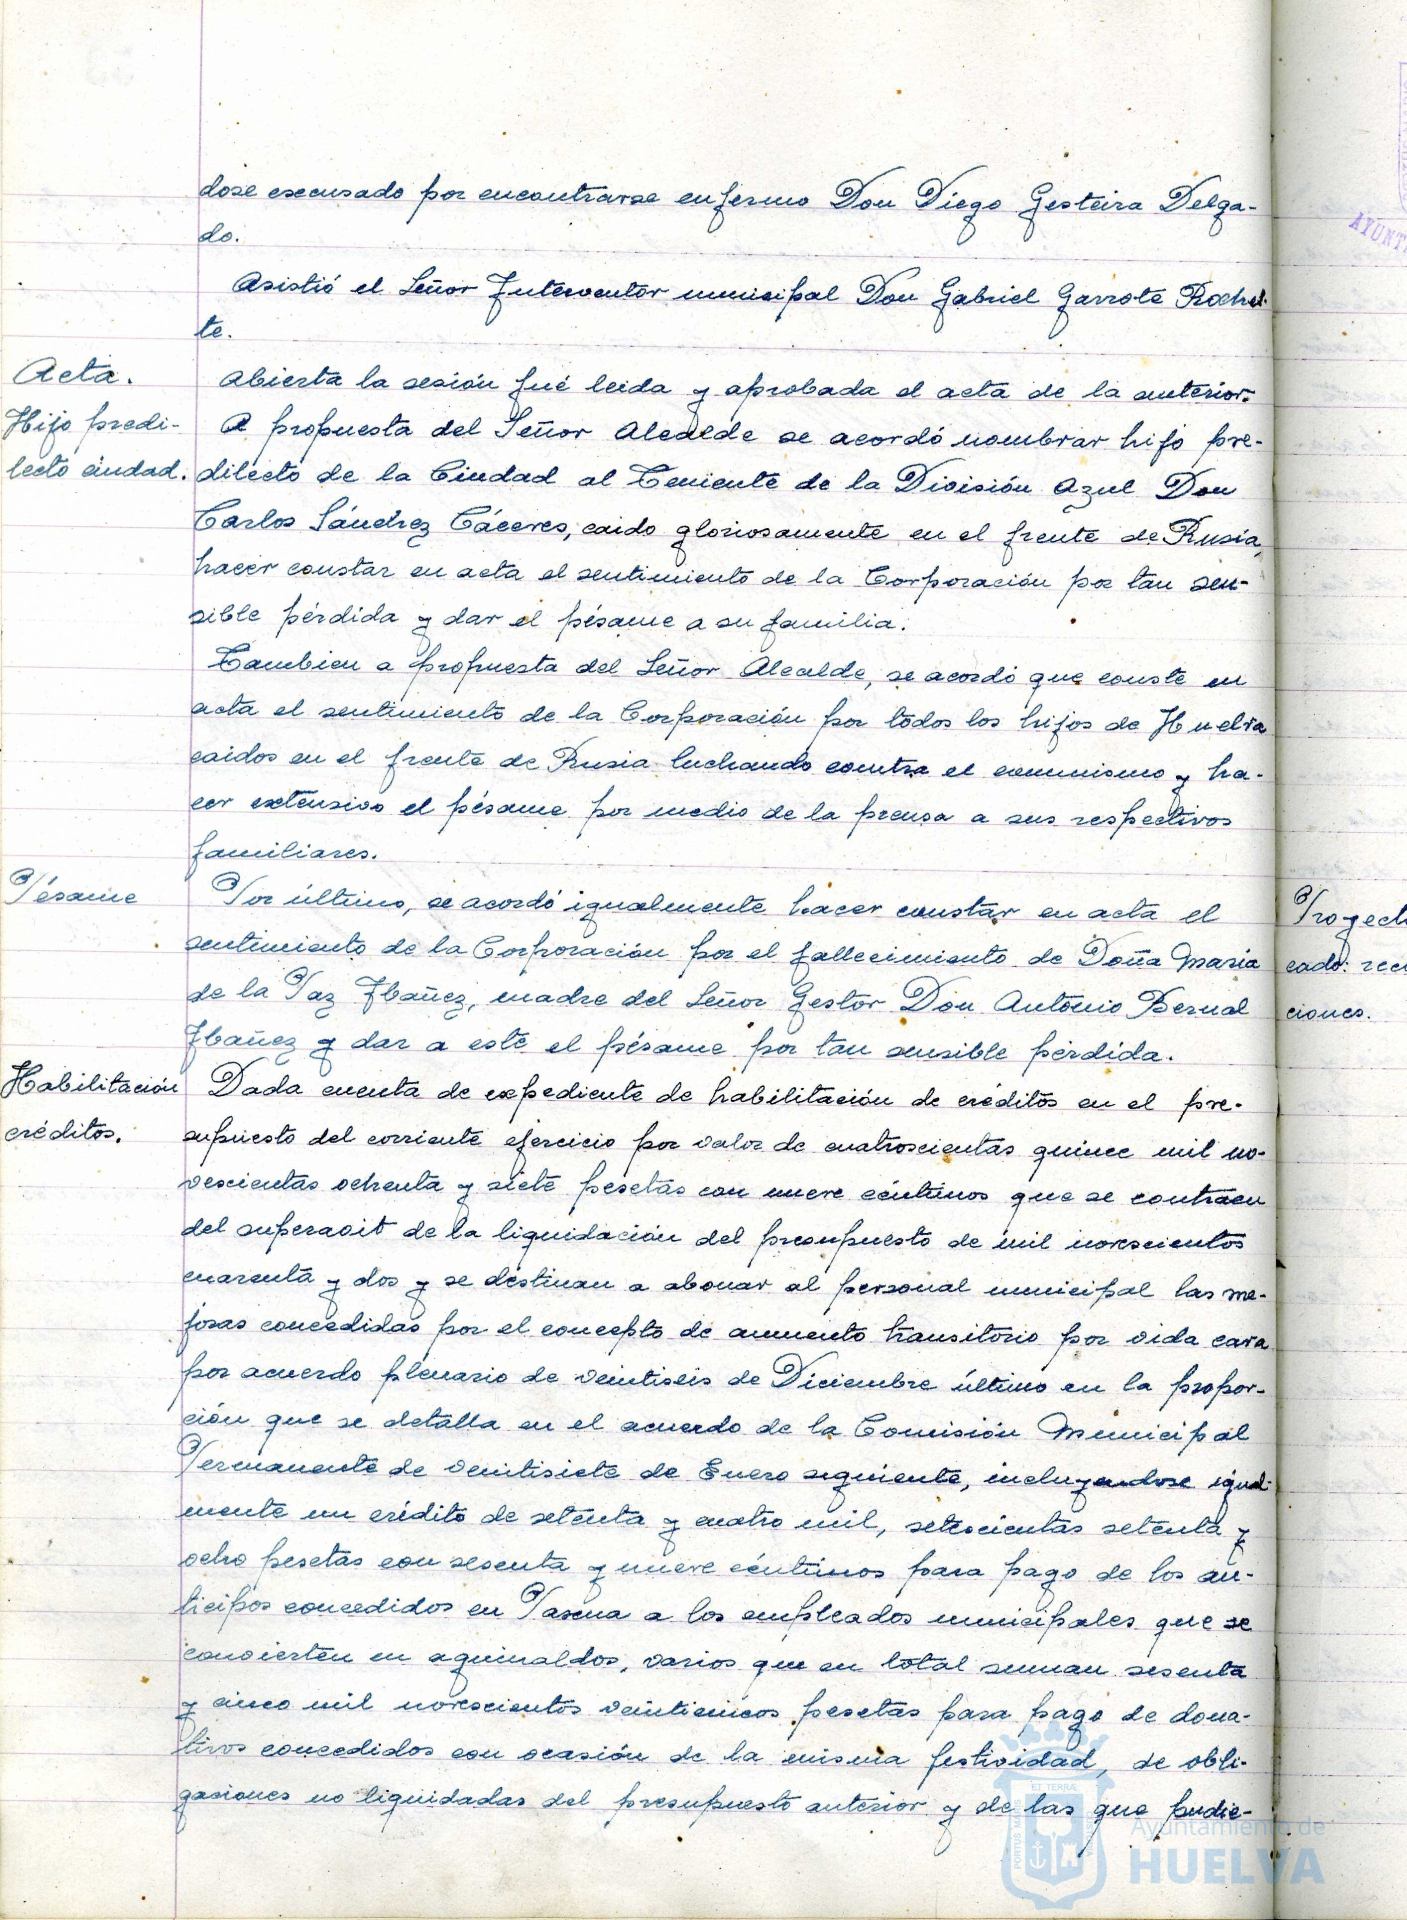 dose excusado por encontrarse enfermo Don Diego Gesteira Delga-
do.
Asistió el Señor Interventor municipal Don Gabriel Garrote Rochel-
te.
Acta.
Abierta la sesión fué leida y aprobada el acta de la anterior.
Hijo predi-
lecto ciudad.
A propuesta del Señor Alcalde se acordó nombrar hijo pre-
dilecto de la Ciudad al Teniente de la División Azul Don
Carlos Sánchez Cáceres, caido gloriosamente en el frente de Rusia,
hacer constar en acta el sentimiento de la Corporación por tan sen-
sible pérdida y dar el pésame a su familia.
Tambien a propuesta del Señor Alcalde, se acordó que conste en
acta el sentimiento de la Corporación por todos los hijos de Huelva
caidos en el frente de Rusia luchando contra el comunismo y ha-
cer extensivo el pésame por medio de la prensa a sus respectivos
familiares.
Pésame
Por último, se acordó igualmente hacer constar en acta el
sentimiento de la Corporación por el fallecimiento de Doña Maria
de la Paz Ibañez, madre del Señor Gestor Don Antonio Bernal
Ibañez y dar a este el pésame por tan sensible pérdida.
Habilitación
créditos.
Dada cuenta de expediente de habilitación de créditos en el pre-
supuesto del corriente ejercicio por valor de cuatroscientas quince mil no-
vescientas ochenta y siete pesetas con nueve céntimos que se contraen
del superavit de la liquidación del presupuesto de mil novescientos
cuarenta y dos y se destinan a abonar al personal municipal las me-
joras concedidas por el concepto de aumento transitorio por vida cara
por acuerdo plenario de veintiseis de Diciembre último en la propor-
ción que se detalla en el acuerdo de la Comisión Municipal
Permanente de veintisiete de Enero siguiente, incluyendose igual-
mente un crédito de setenta y cuatro mil, setescientas setenta y
ocho pesetas con sesenta y nueve céntimos para pago de los an-
ticipos concedidos en Pascua a los empleados municipales que se
convierten en aguinaldos, varios que en total suman sesenta
y cinco mil novescientos veinticincos pesetas para pago de dona-
tivos concedidos con ocasión de la misma festividad, de obli-
gaciones no liquidadas del presupuesto anterior y de las que pudie-
Proyect
cado: rec
ciones.
AYUNT
ET TERRÆ
PORTUS MA
Ayuntamiento de
HUELVA